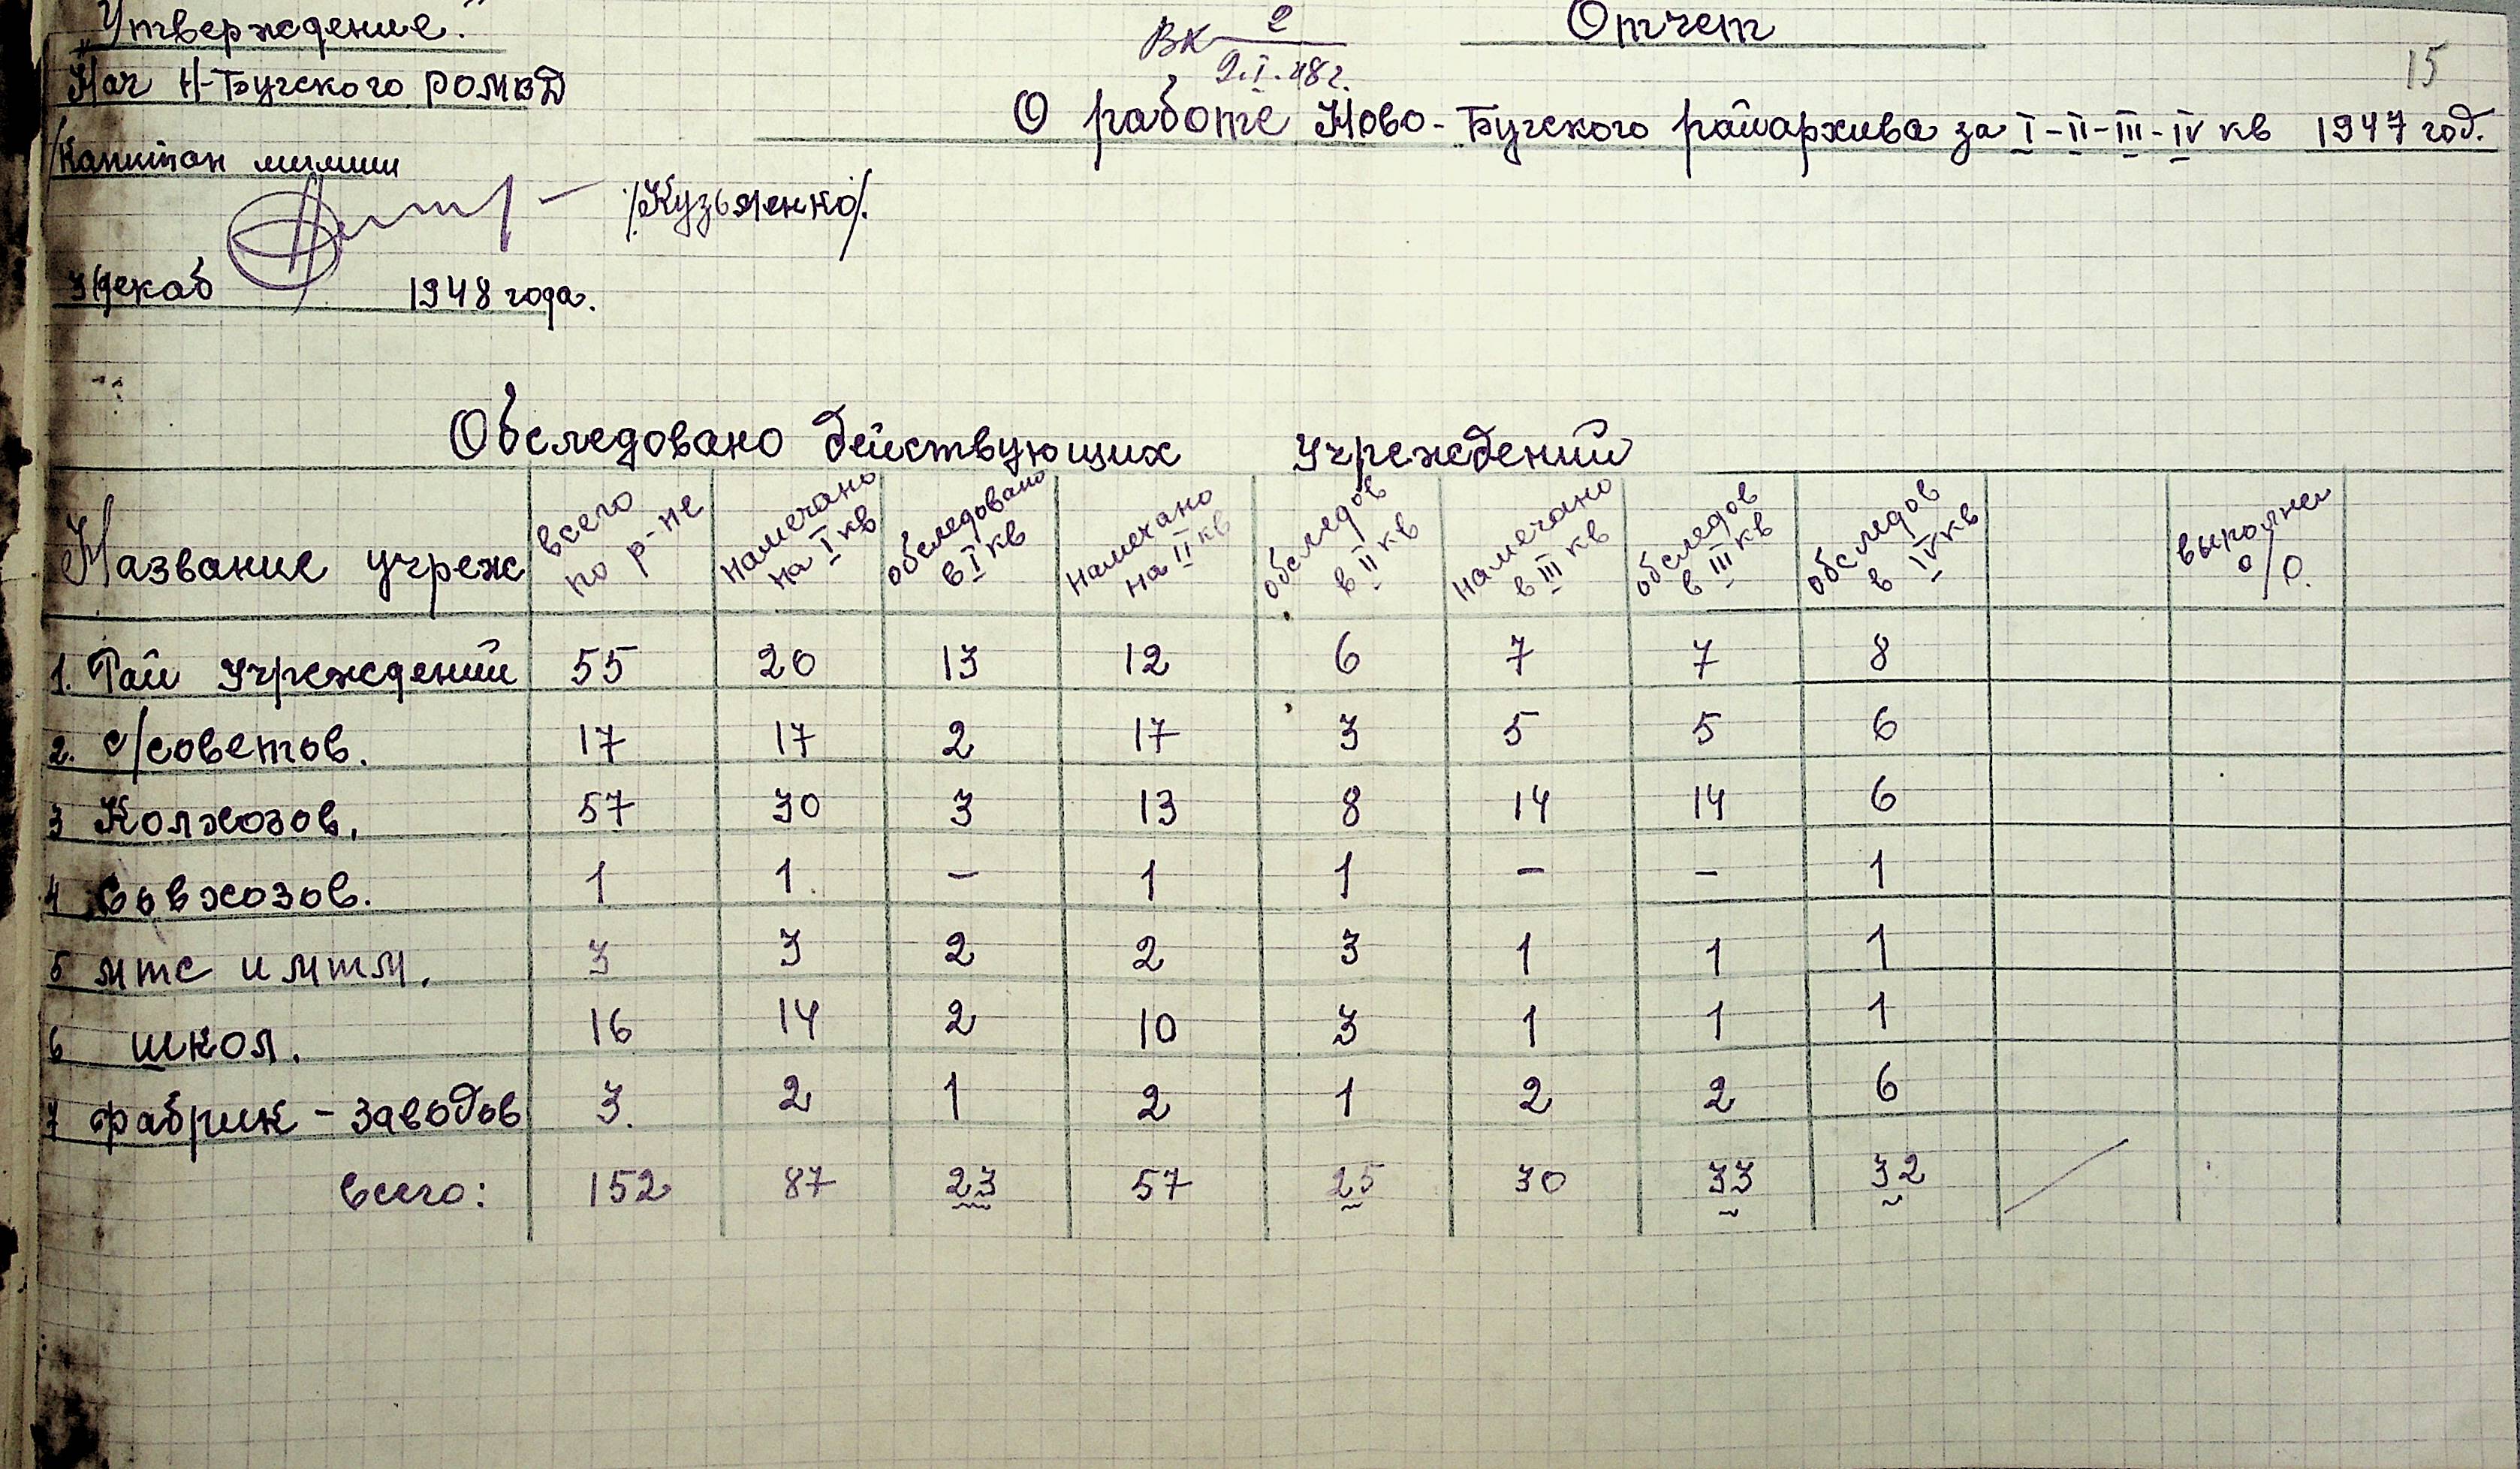 „Утверждение."
Нач Н-Бугского РОМВД
/Капитан милиции
/Кузьменко/.
декаб 1948 года.
Вх 2
2.I.48г.
15
Отчет
О работе Ново-Бугского райархива за I-II-III-IV кв 1947 год.
Обследовано действующих учреждений
Название учреж | всего по р-не | намечано на I кв | обследовано в I кв | намечано на II кв | обследов в II кв | намечано в III кв | обследов в III кв | обследов в IV кв | | выполнен о/о.
1. Рай учреждений 55 20 13 12 6 7 7 8
2. с/советов. 17 17 2 17 3 5 5 6
3 Колхозов. 57 30 3 13 8 14 14 6
4 Совхозов. 1 1 – 1 1 – – 1
5 мтс и мтм. 3 3 2 2 3 1 1 1
6 школ. 16 14 2 10 3 1 1 1
7 фабрик - заводов 3. 2 1 2 1 2 2 6
всего: 152 87 23 57 25 30 33 32